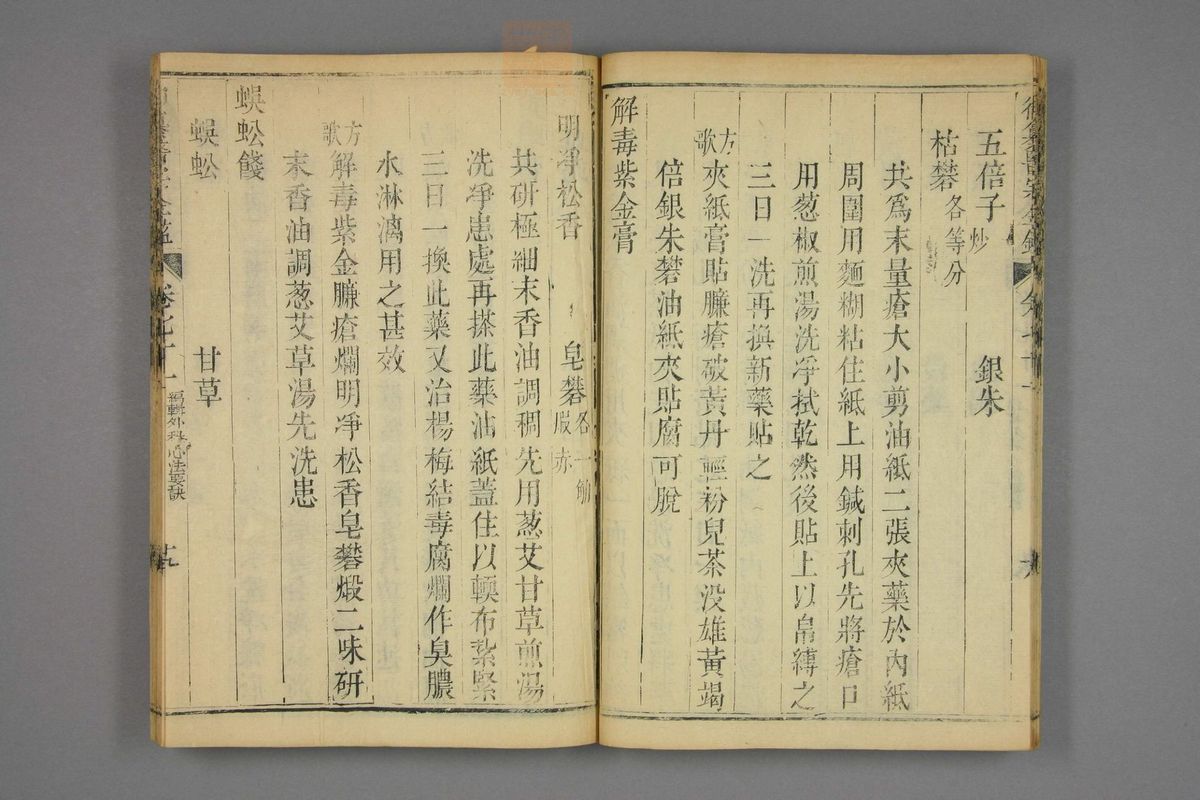 五倍子炒 銀朱
枯礬各等分
共爲末量瘡大小剪油紙二張夾藥於內紙
周圍用麵糊粘住紙上用鍼刺孔先將瘡口
用葱椒煎湯洗凈拭乾然後貼上以帛縛之
三日一洗再換新藥貼之
方歌夾紙膏貼臁瘡破黃丹輕粉兒茶没雄黃竭
倍銀朱礬油紙夾貼腐可脫
解毒紫金膏
明凈松香 皂礬煆赤各一觔
共研極細末香油調稠先用葱艾甘草煎湯
洗凈患處再搽此藥油紙蓋住以輭布紮緊
三日一換此藥又治楊梅結毒腐爛作臭膿
水淋漓用之甚效
方歌解毒紫金臁瘡爛明凈松香皂礬煅二味研
末香油調葱艾草湯先洗患
蜈蚣餞
蜈蚣 甘草
卷七十一 編輯外科心法要訣